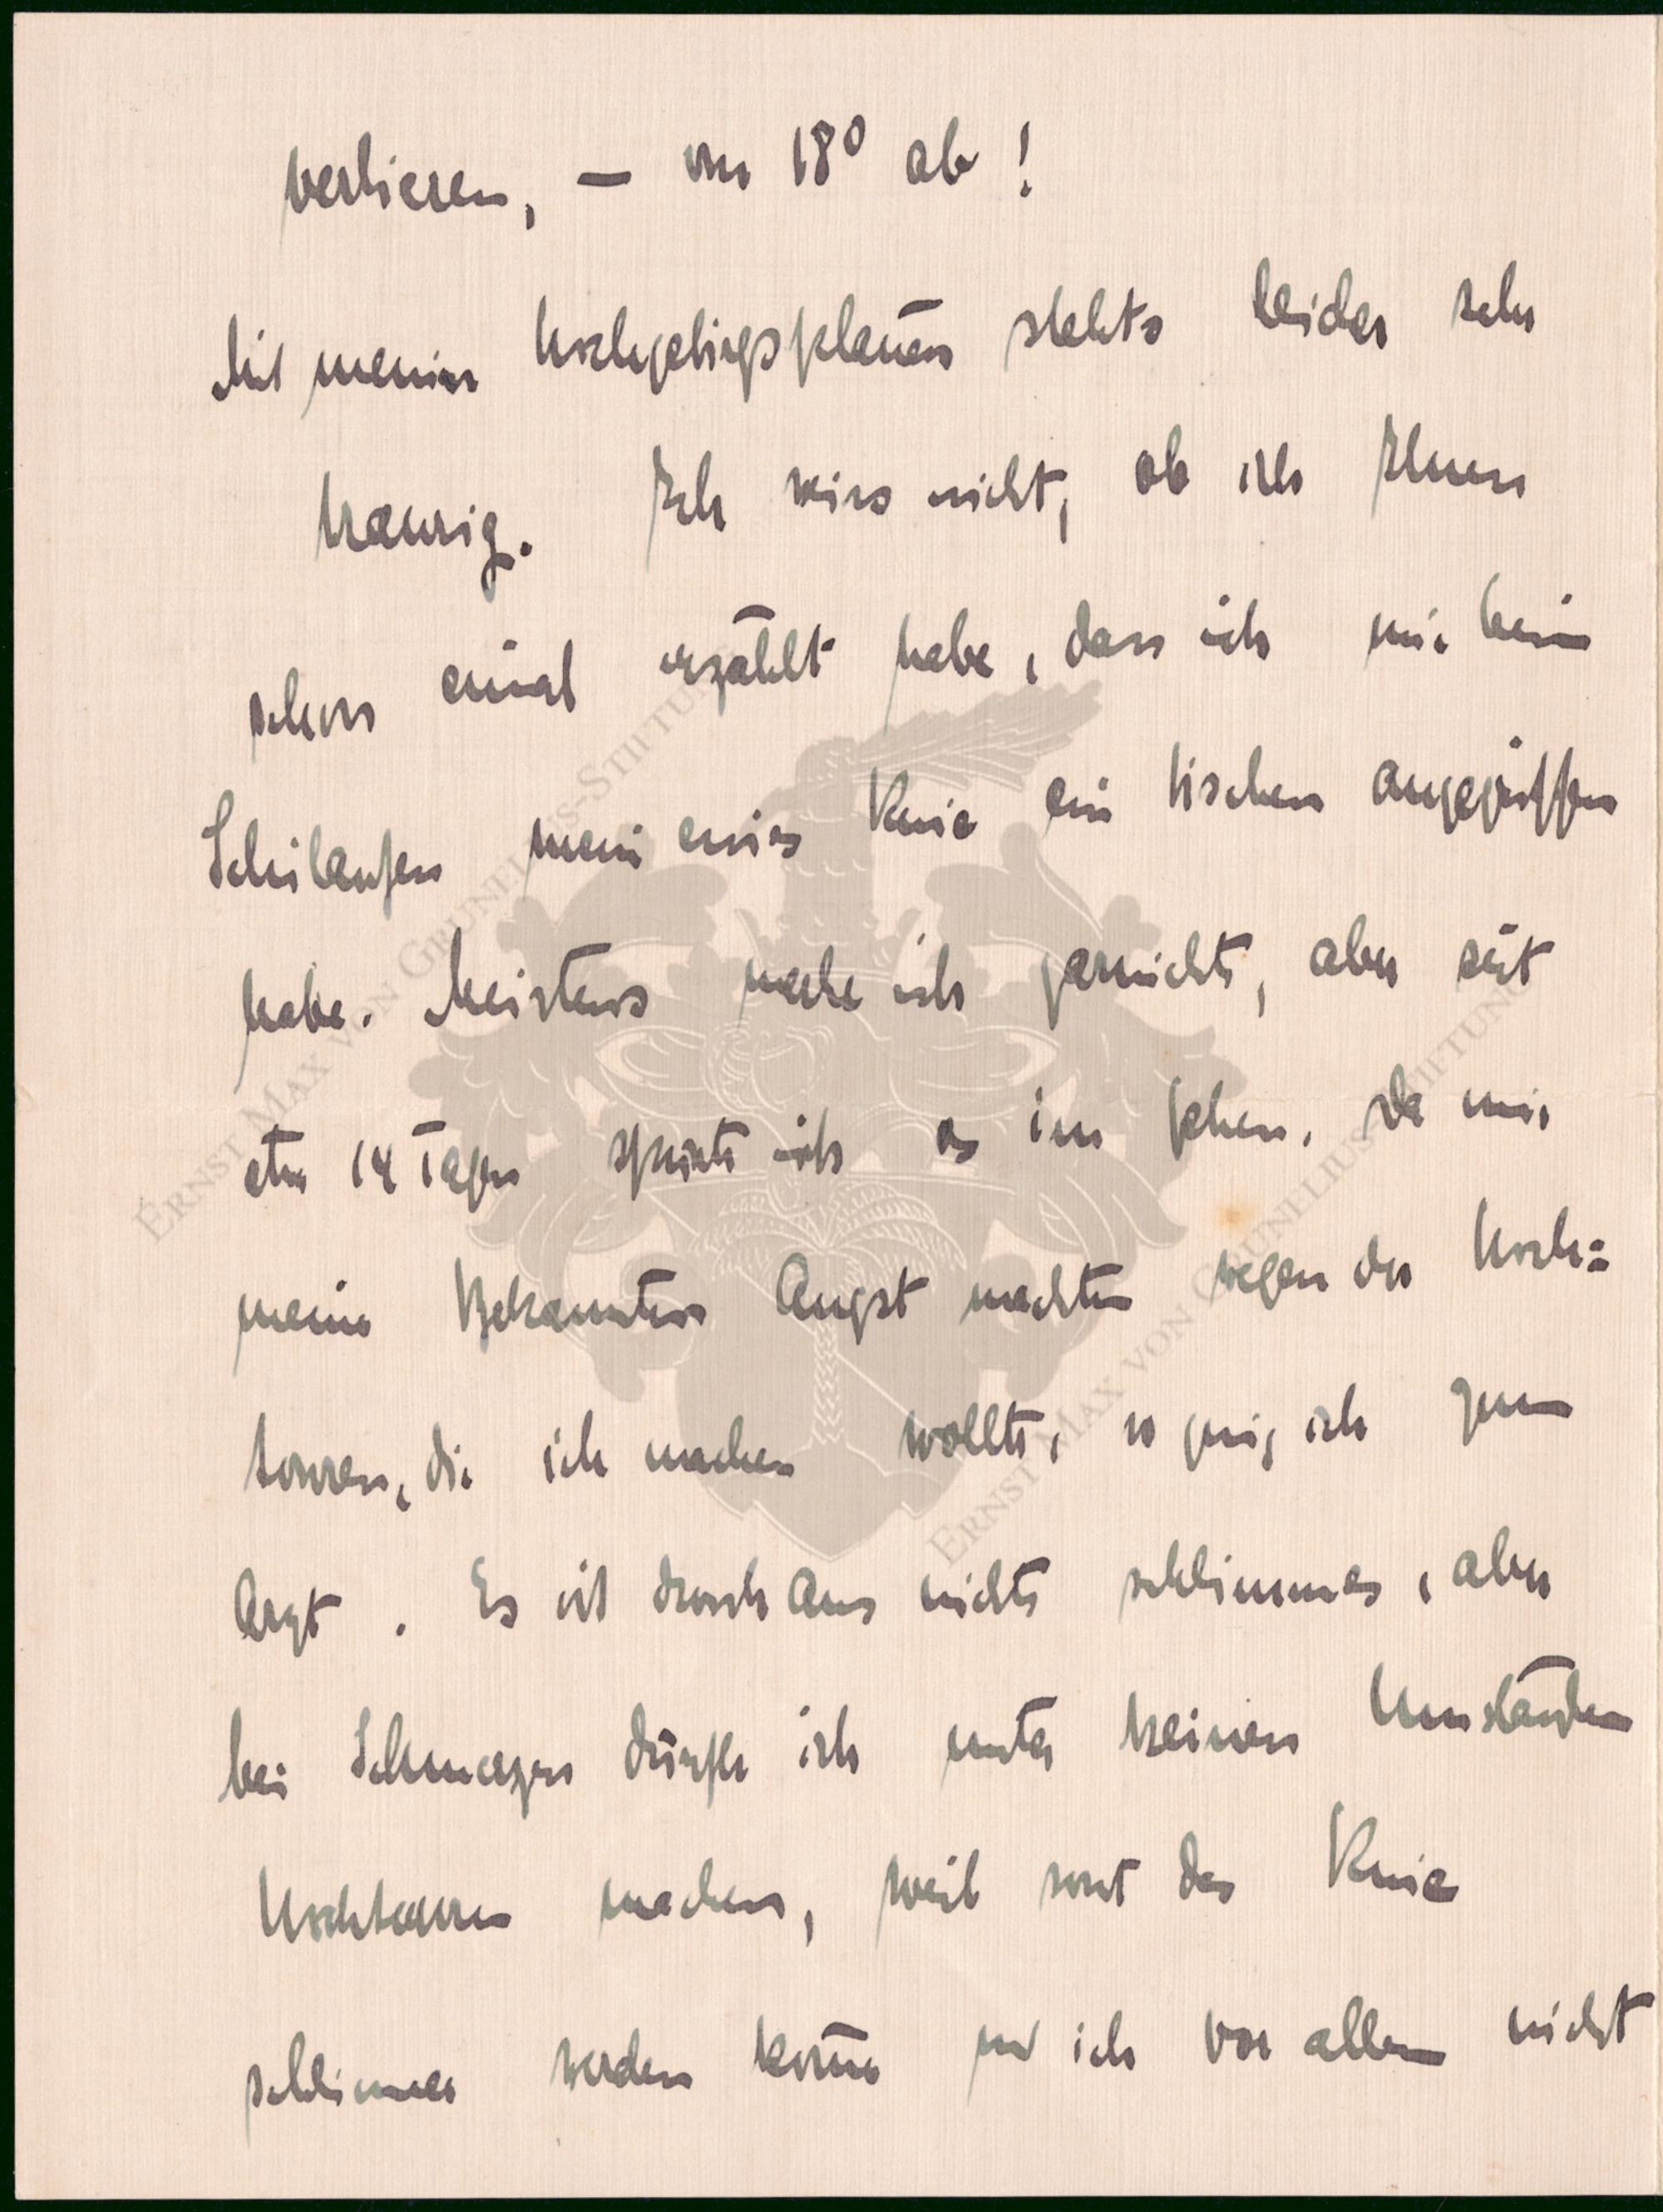 verlieren, — von 18° ab!
Mit meinen Hochgebirgsplänen stehts leider sehr
traurig. Ich weiss nicht, ob ich Ihnen
schon einmal erzählt habe, dass ich mir beim
Schilaufen mein eines Knie ein bischen angegriffen
habe. Meistens merke ich garnichts, aber seit
etwa 14 Tagen spürte ich es im gehen. Da mir
meine Bekannten Angst machten wegen der Hoch=
touren, die ich machen wollte, so ging ich zum
Arzt. Es ist durchaus nichts schlimmes, aber
bei Schmerzen dürfte ich unter keinen Umständen
Hochtouren machen, weil sonst das Knie
schlimmer werden könne und ich vor allem nicht
ERNST MAX VON GRUNELIUS-STIFTUNG
ERNST MAX VON GRUNELIUS-STIFTUNG